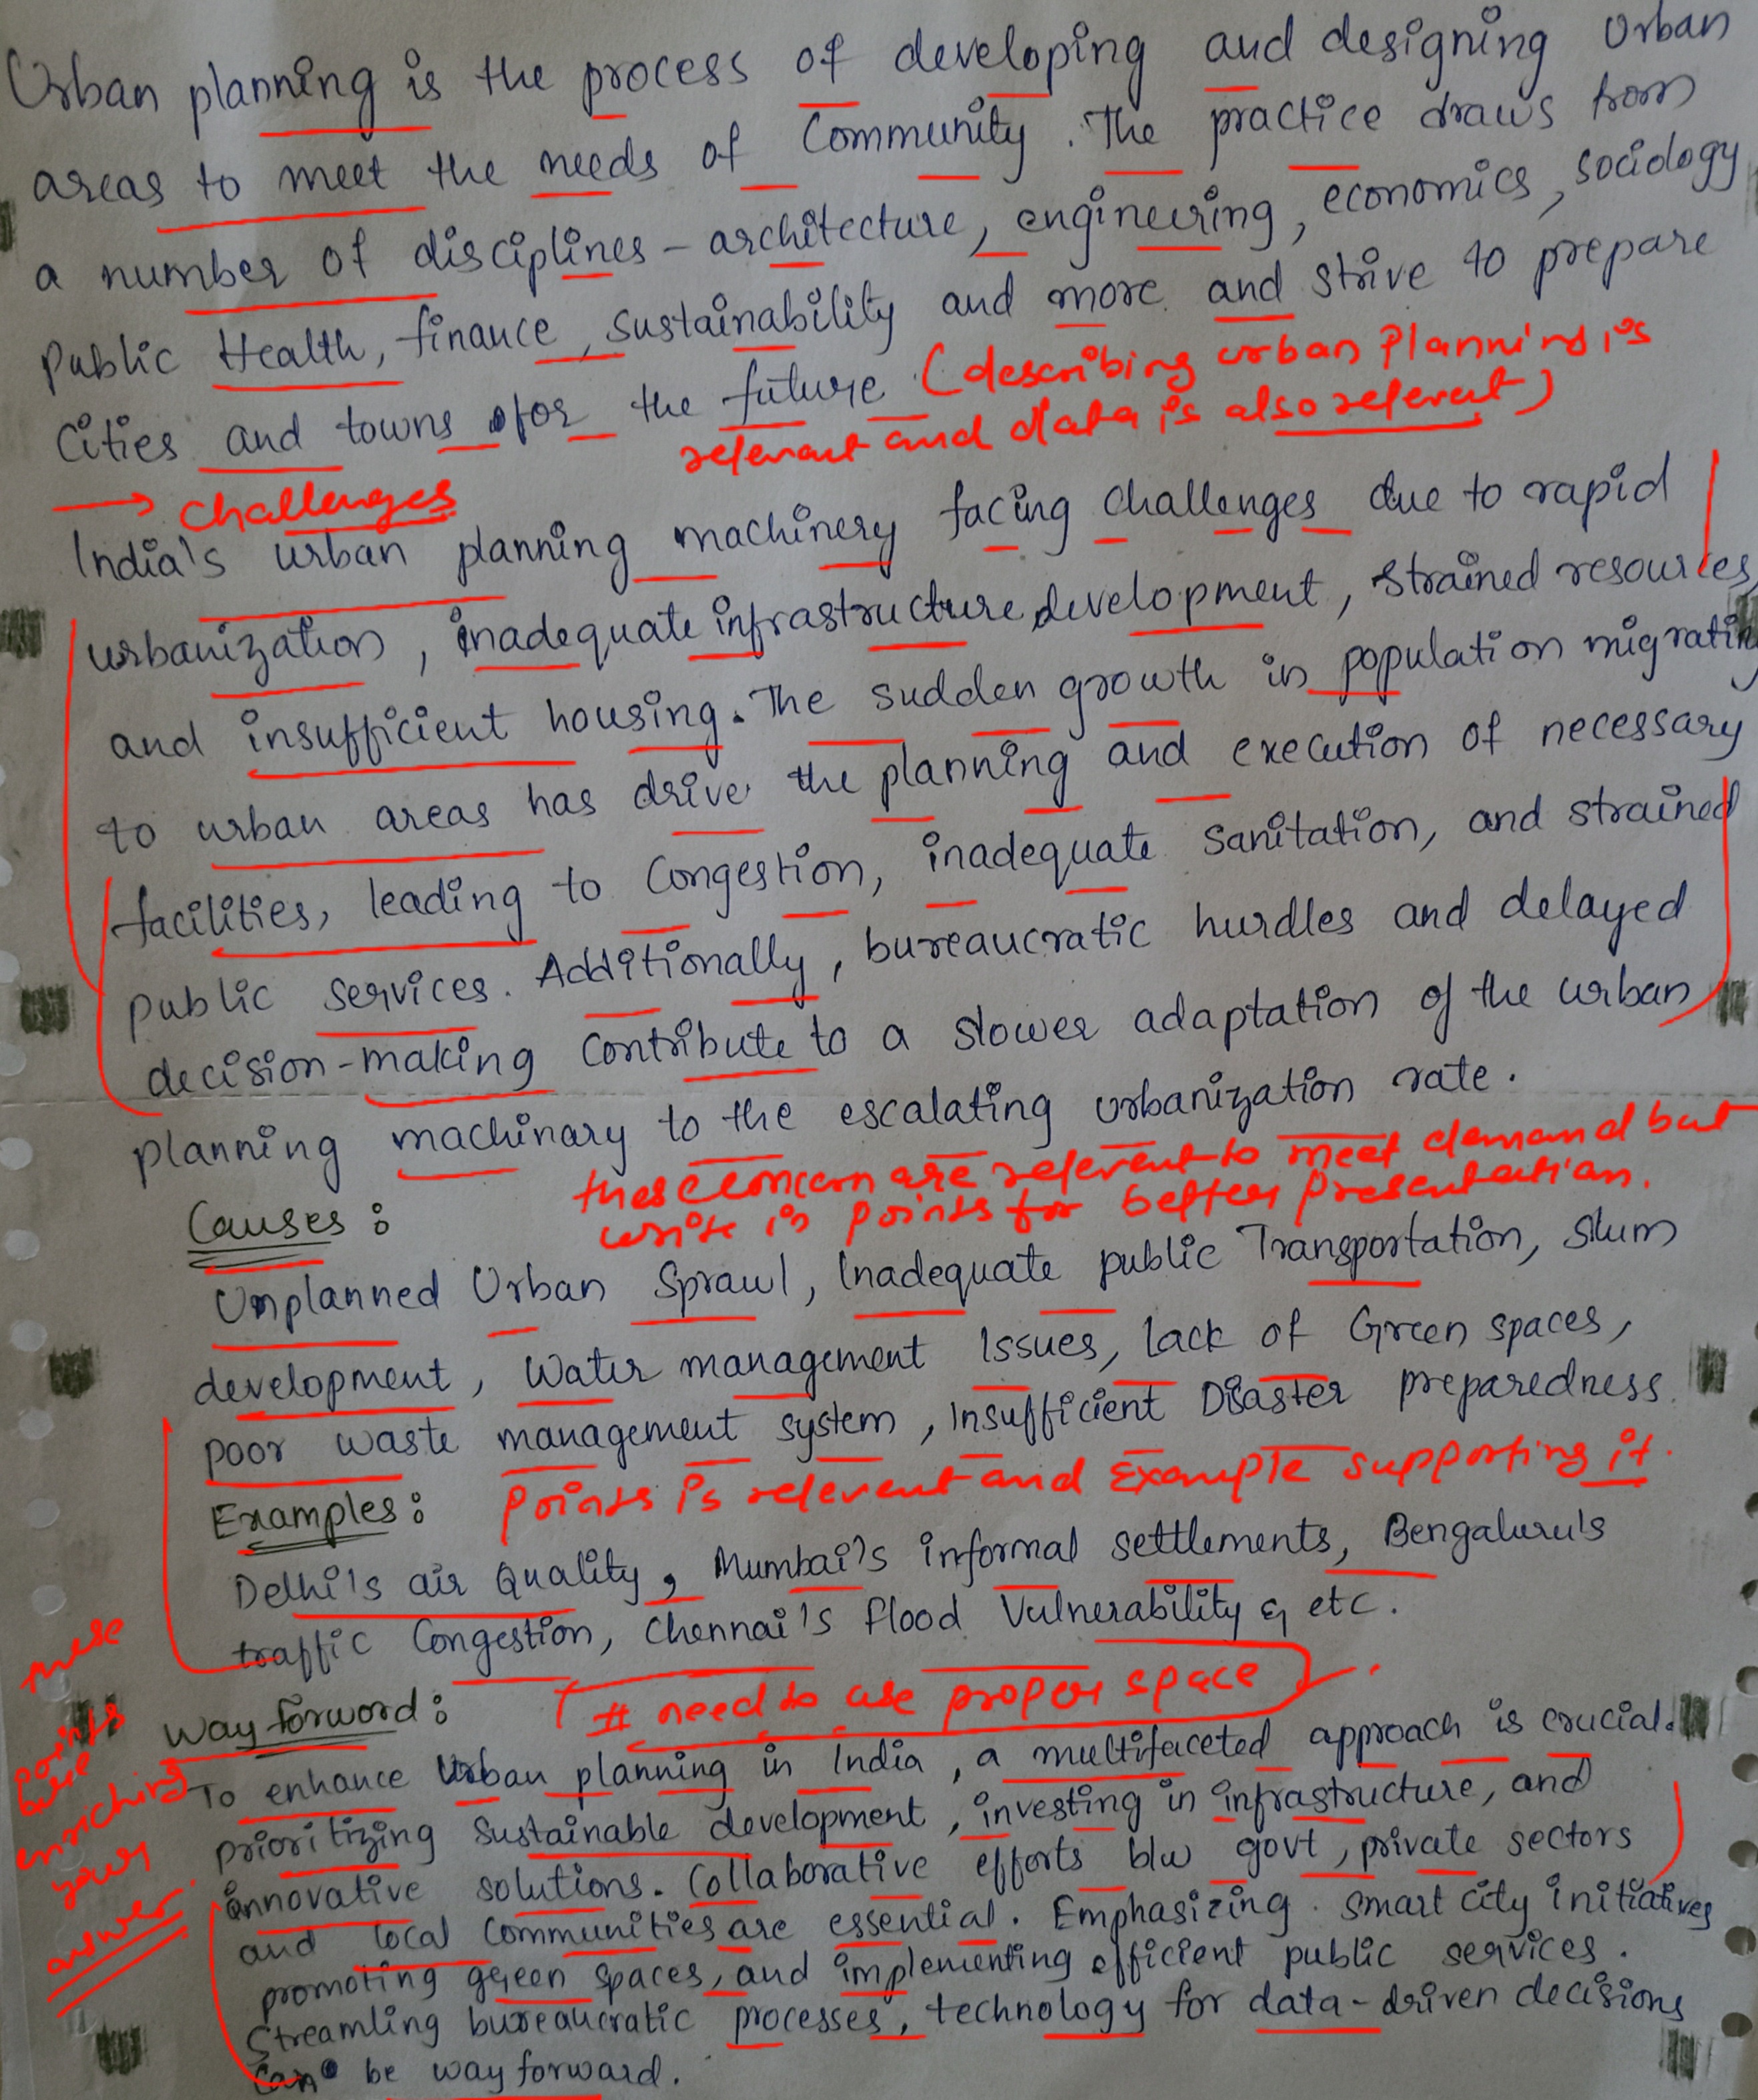 Urban planning is the process of developing and designing Urban
areas to meet the needs of Community. The practice draws from
a number of disciplines - architecture, engineering, economics, sociology
Public Health, finance, sustainability and more and strive to prepare
Cities and towns for the future. (describing urban planning is
relevant and data is also relevent)
→ challenges
India's urban planning machinery facing challenges due to rapid
urbanization, inadequate infrastructure development, strained resources,
and insufficient housing. The sudden growth in population migratin
to urban areas has drive the planning and execution of necessary
facilities, leading to congestion, inadequate sanitation, and strained
public services. Additionally, bureaucratic hurdles and delayed
decision-making contribute to a slower adaptation of the urban
planning machinary to the escalating urbanization rate.
thes concern are relevent to meet demand but
write in points for better presentation.
Causes:
Unplanned Urban Sprawl, Inadequate public Transportation, Slum
development, Water management Issues, lack of Green spaces,
poor waste management system, Insufficient Disaster preparedness.
Examples: points is relevent and Example supporting it.
Delhi's air Quality, Mumbai's informal settlements, Bengaluru's
traffic Congestion, Chennai's flood Vulnerability & etc.
# need to use proper space
Way forword:
these
points
are
enriching
your
answer.
To enhance Urban planning in India, a multifaceted approach is crucial.
prioritizing sustainable development, investing in infrastructure, and
innovative solutions. Collaborative efforts b/w govt, private sectors
and local Communities are essential. Emphasizing smart city initiatives
promoting green spaces, and implementing efficient public services.
Streamling bureaucratic processes, technology for data-driven decisions
can be way forward.